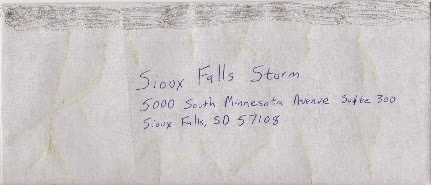 Sioux Falls Storm
5000 South Minnesota Avenue Suite 300
Sioux Falls, SD 57108